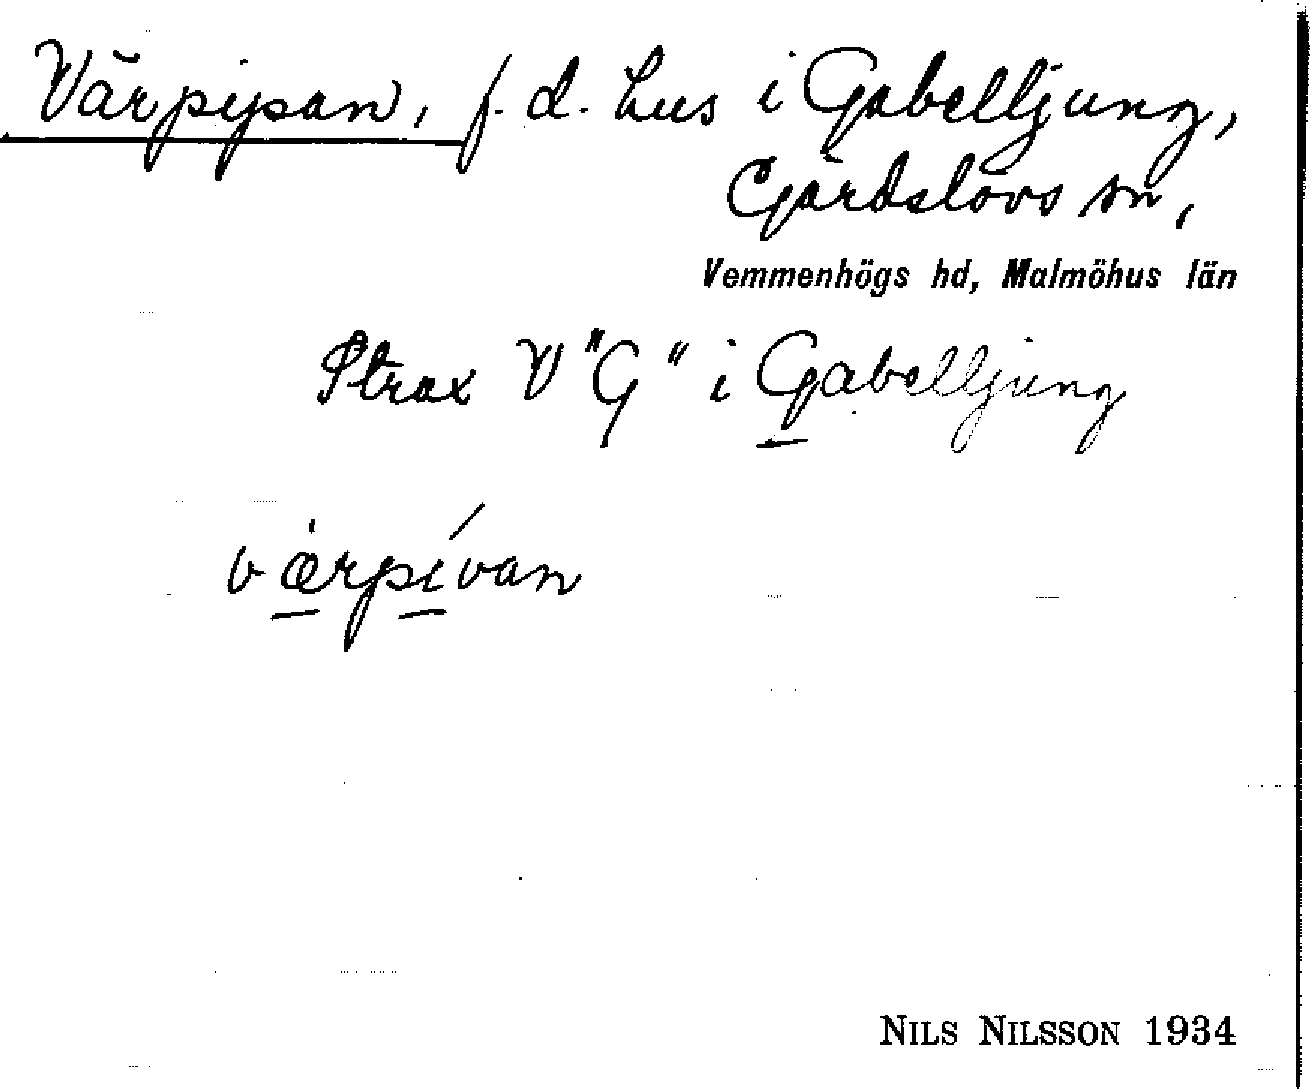 Värpipan, f. d. hus i Gabelljung,
Gärdslövs sn,
Vemmenhögs hd, Malmöhus län
Strax V "G" i Gabelljung
værpívan
NILS NILSSON 1934